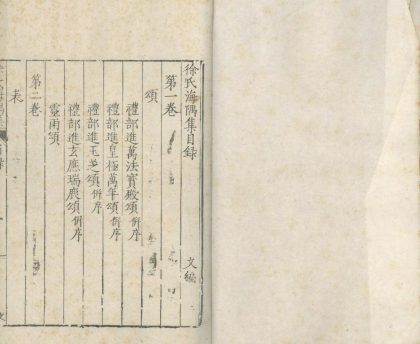 徐氏海隅集目錄 文編
第一卷
頌
禮部進萬法寶殿頌併序
禮部進皇極萬年頌併序
禮部進玉芝頌併序
禮部進玄應瑞鹿頌併序
靈雨頌
第二卷
表